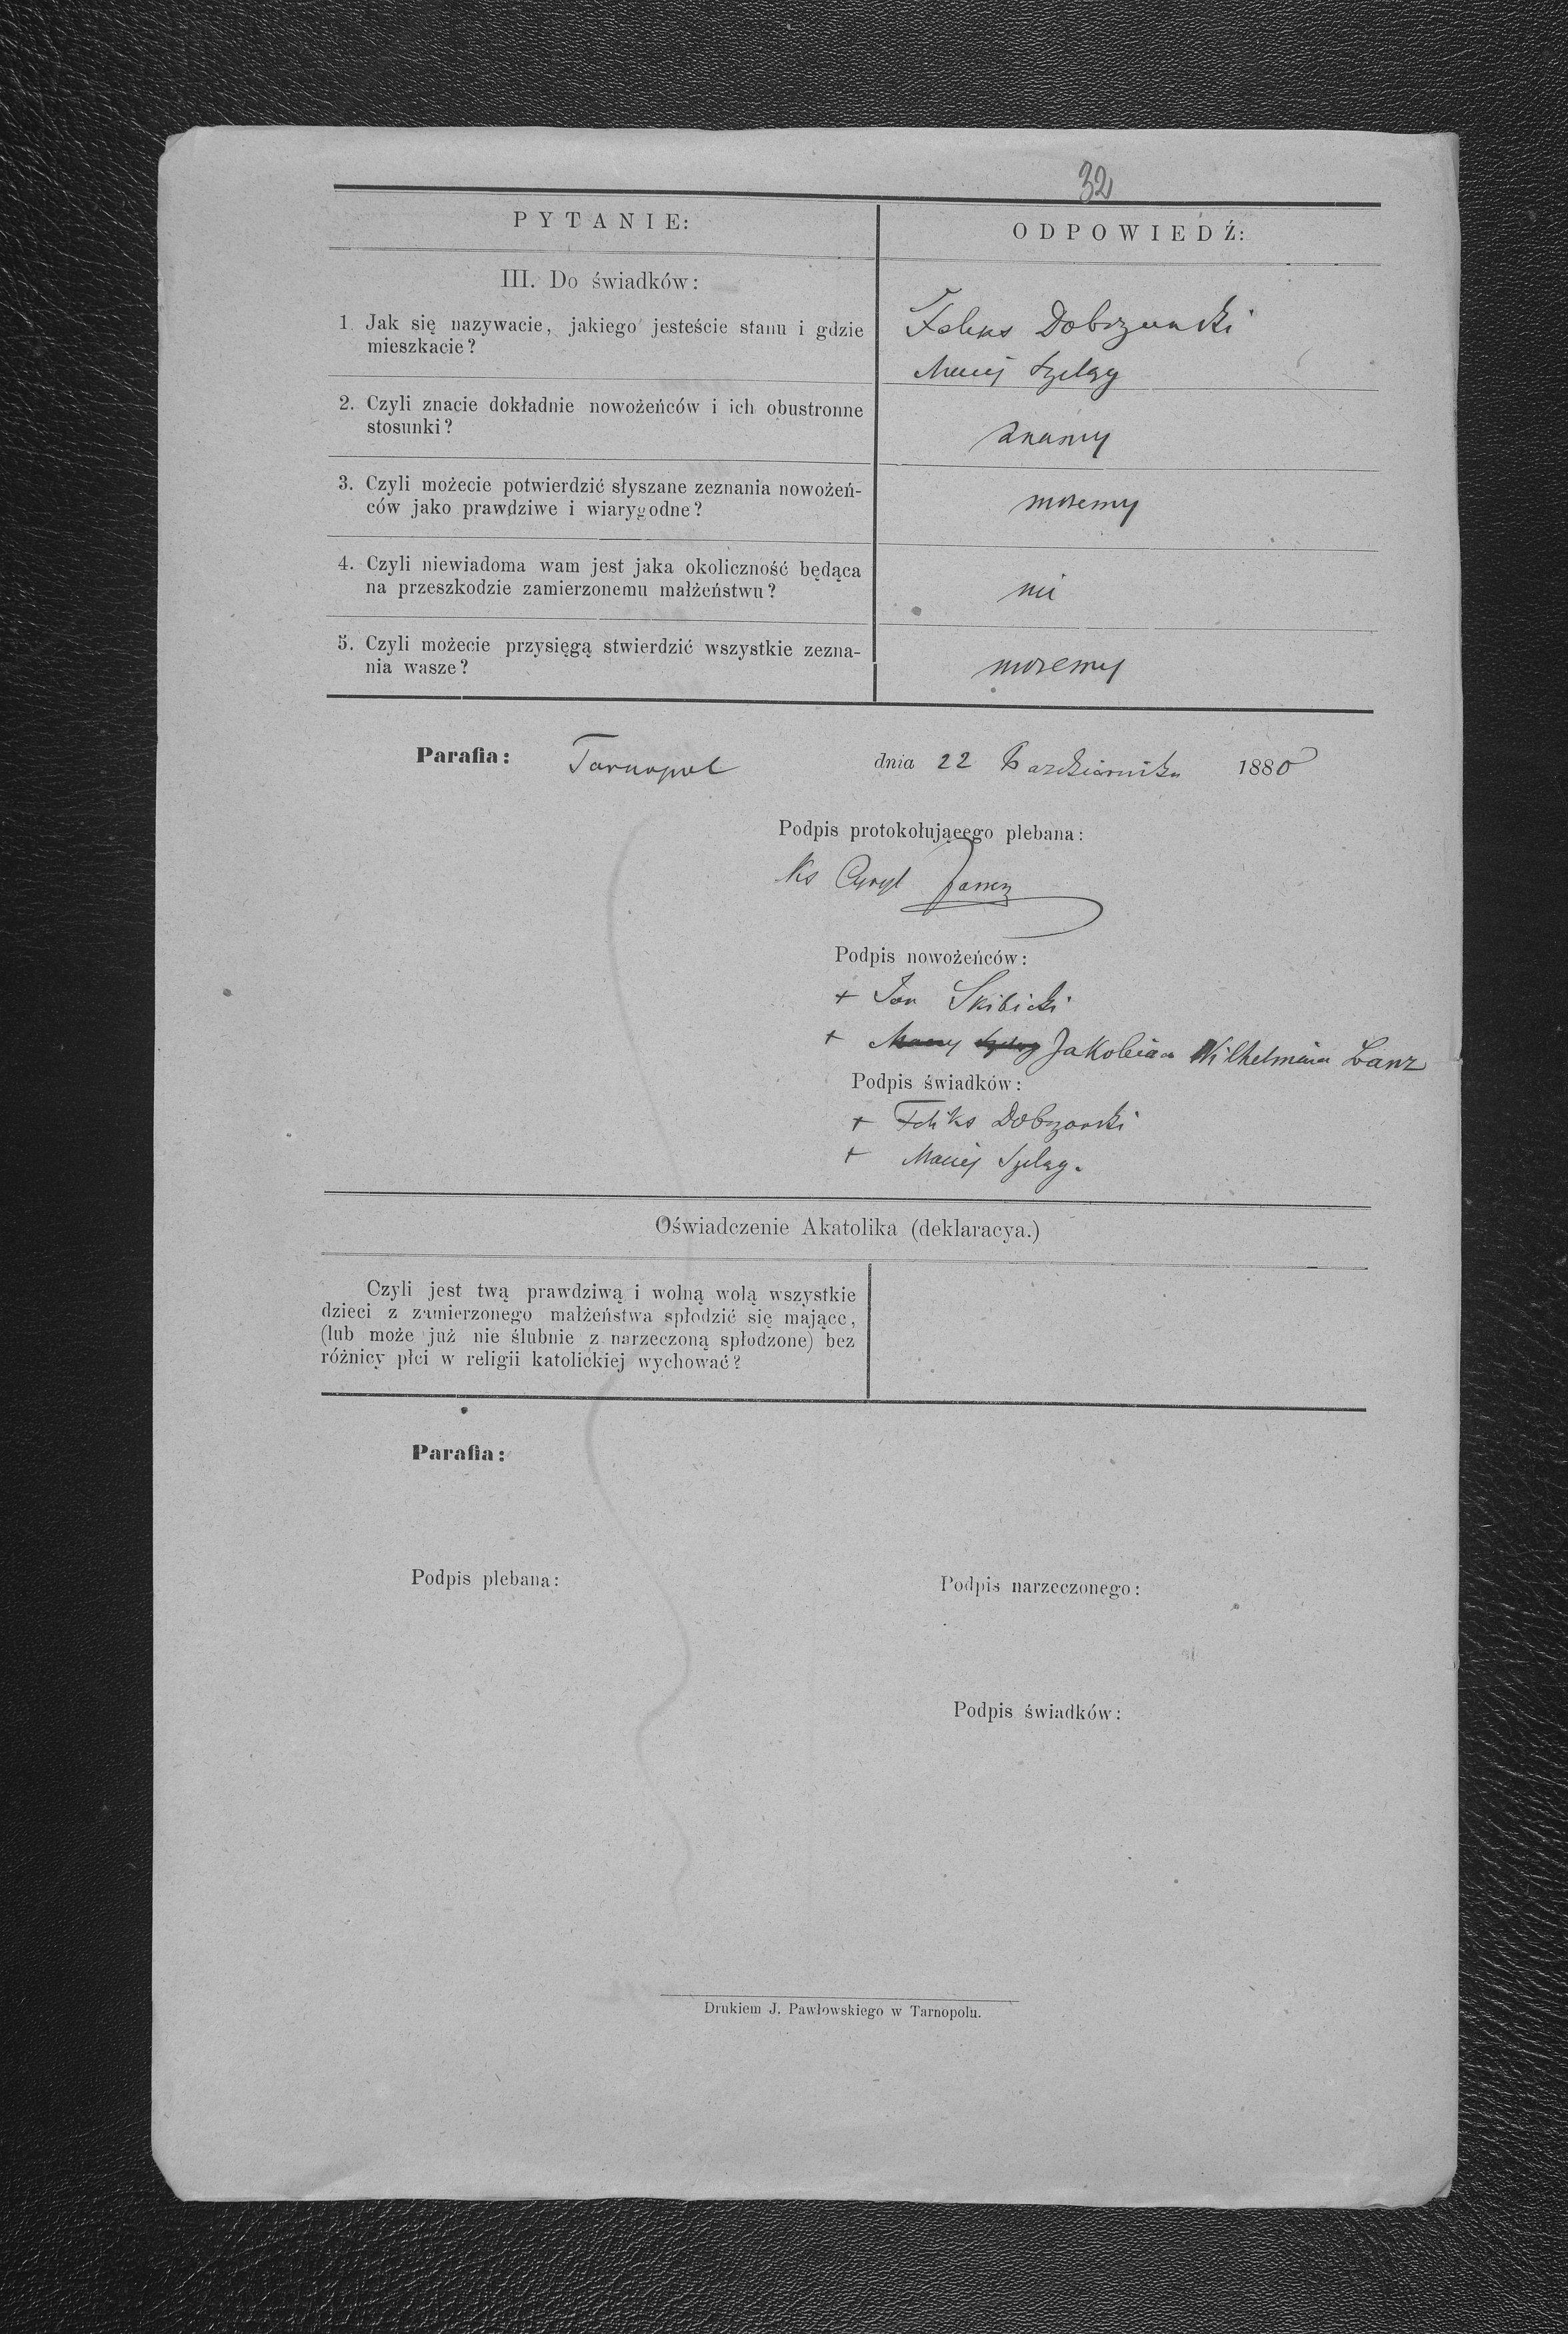 32
PYTANIE:
ODPOWIEDŹ:
III. Do świadków:
1. Jak się nazywacie, jakiego jesteście stanu i gdzie
mieszkacie?
Feliks Dobrzanski
Maciej Szeląg
2. Czyli znacie dokładnie nowożeńców i ich obustronne
stosunki?
znamy
3. Czyli możecie potwierdzić słyszane zeznania nowożeń-
ców jako prawdziwe i wiarygodne?
możemy
4. Czyli niewiadoma wam jest jaka okoliczność będąca
na przeszkodzie zamierzonemu małżeństwu?
nie
5. Czyli możecie przysięgą stwierdzić wszystkie zezna-
nia wasze?
możemy
Parafia: Tarnopol dnia 22 Października 1880
Podpis protokołującego plebana:
Ks Cyryl
Podpis nowożeńców:
+ Jan Skibicki
+ Maciej Szeląg Jakobina Wilhelmina Lanz
Podpis świadków:
+ Feliks Dobrzanski
+ Maciej Szeląg.
Oświadczenie Akatolika (deklaracya.)
Czyli jest twą prawdziwą i wolną wolą wszystkie
dzieci z zamierzonego małżeństwa spłodzić się mające,
(lub może już nie ślubnie z narzeczoną spłodzone) bez
różnicy płci w religii katolickiej wychować?
Parafia:
Podpis plebana:
Podpis narzeczonego:
Podpis świadków:
Drukiem J. Pawłowskiego w Tarnopolu.